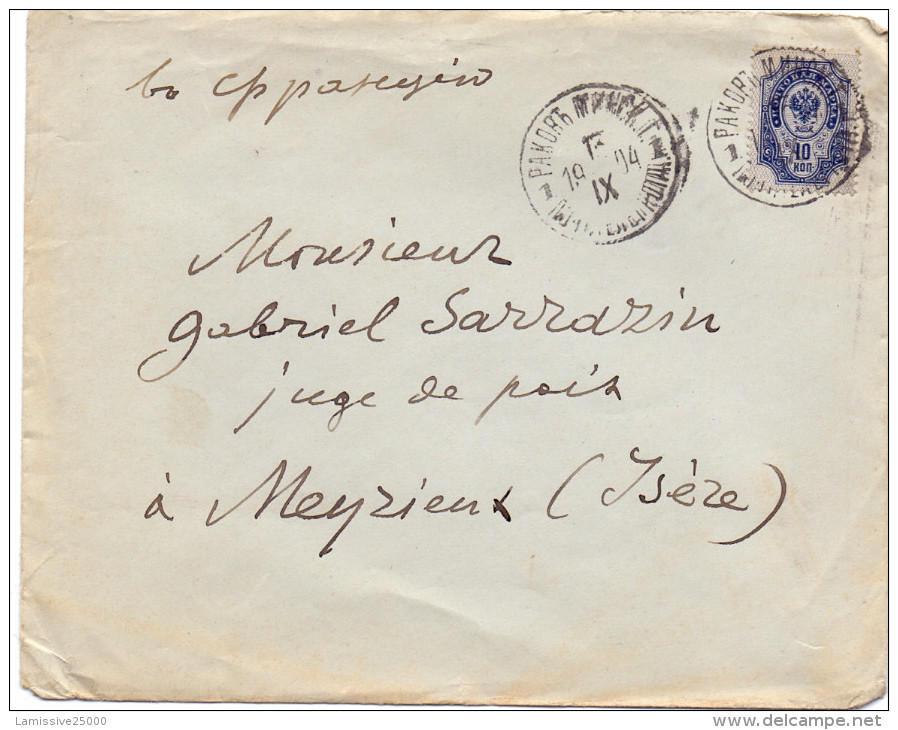 въ Францію
РАКОВЪ МИНСК. Г.
19 04
IX
РАКОВЪ
ПОЧТОВАЯ МАРКА
10
КОП.
Monsieur
Gabriel Sarrazin
juge de paix
à Meyrieux (Isère)
Lamissive25000
www.delcampe.net